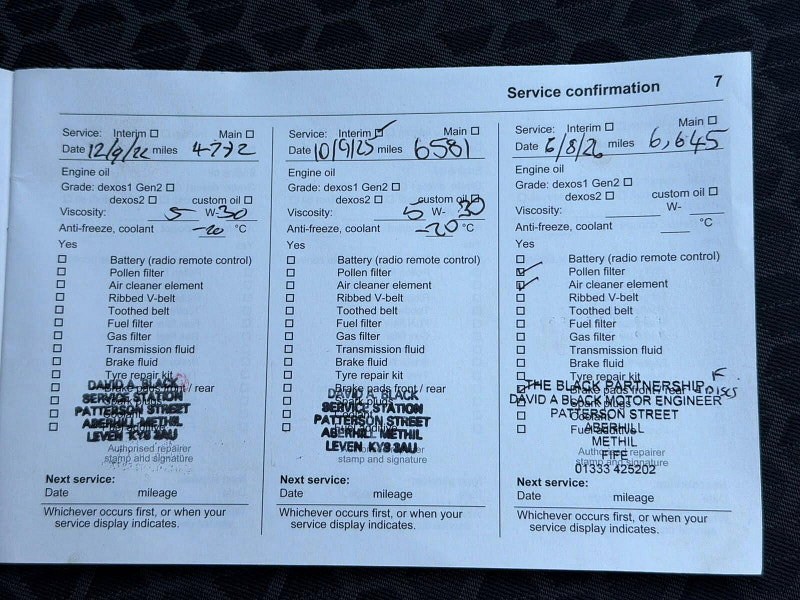 Service confirmation 7
Service: Interim Main
Date 12/9/22 miles 4772
Engine oil
Grade: dexos1 Gen2
dexos2 custom oil
Viscosity: 5 W-30
Anti-freeze, coolant -20 °C
Yes
Battery (radio remote control)
Pollen filter
Air cleaner element
Ribbed V-belt
Toothed belt
Fuel filter
Gas filter
Transmission fluid
Brake fluid
Tyre repair kit
Brake pads front / rear
DAVID A BLACK
SERVICE STATION
PATTERSON STREET
ABERHILL METHIL
LEVEN KY8 3AU
Authorised repairer
stamp and signature
Next service:
Date mileage
Whichever occurs first, or when your
service display indicates.
Service: Interim ✓ Main
Date 10/9/25 miles 6581
Engine oil
Grade: dexos1 Gen2
dexos2 custom oil
Viscosity: 5 W- 30
Anti-freeze, coolant -20 °C
Yes
Battery (radio remote control)
Pollen filter
Air cleaner element
Ribbed V-belt
Toothed belt
Fuel filter
Gas filter
Transmission fluid
Brake fluid
Tyre repair kit
Brake pads front / rear
DAVID A BLACK
SERVICE STATION
PATTERSON STREET
ABERHILL METHIL
LEVEN KY8 3AU
stamp and signature
Next service:
Date mileage
Whichever occurs first, or when your
service display indicates.
Service: Interim Main
Date 6/8/26 miles 6,645
Engine oil
Grade: dexos1 Gen2
dexos2 custom oil
Viscosity: W-
Anti-freeze, coolant °C
Yes
Battery (radio remote control)
✓ Pollen filter
✓ Air cleaner element
Ribbed V-belt
Toothed belt
Fuel filter
Gas filter
Transmission fluid
Brake fluid
Tyre repair kit
Brake pads front / rear DISCS
THE BLACK PARTNERSHIP
DAVID A BLACK MOTOR ENGINEER
PATTERSON STREET
ABERHILL
METHIL
FIFE
01333 425202
Authorised repairer
stamp and signature
Next service:
Date mileage
Whichever occurs first, or when your
service display indicates.